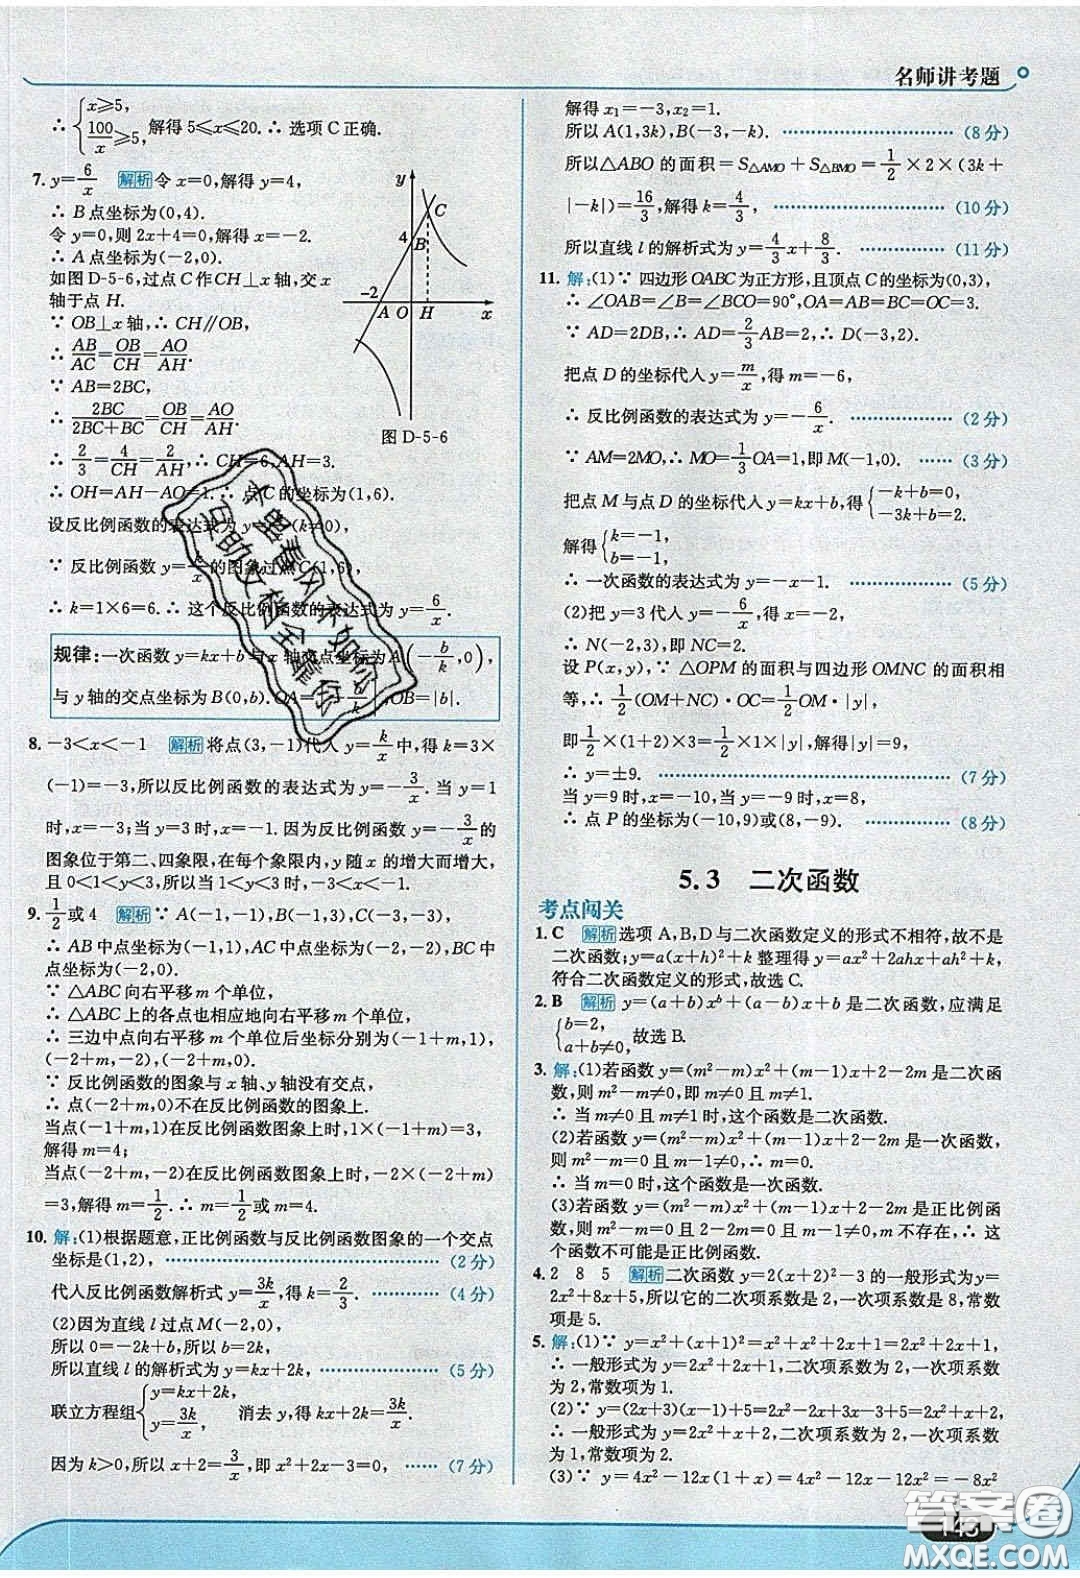 名师讲考题
∴ {x≥5, 100/x≥5, 解得 5≤x≤20.∴ 选项 C 正确.
7. y=6/x 解析 令 x=0,解得 y=4,
∴ B 点坐标为(0,4).
令 y=0,则 2x+4=0,解得 x=-2.
∴ A 点坐标为(-2,0).
如图 D-5-6,过点 C 作CH⊥x 轴,交 x
轴于点 H.
∵ OB⊥x 轴,∴ CH∥OB,
∴ AB/AC=OB/CH=AO/AH.
∵ AB=2BC,
∴ 2BC/(2BC+BC)=OB/CH=AO/AH.
∴ 2/3=4/CH=2/AH,∴ CH=6,AH=3.
∴ OH=AH-AO=1.∴ 点 C 的坐标为(1,6).
y
C
4
B
-2
A O H x
图 D-5-6
设反比例函数的表达式为 y= (k≠0),
∵ 反比例函数 y=k/x 的图象过点 C(1,6),
∴ k=1×6=6.∴ 这个反比例函数的表达式为 y=6/x.
规律:一次函数 y=kx+b 与 x 轴交点坐标为A(-b/k,0),
与 y 轴的交点坐标为 B(0,b).OA=|-b/k|,OB=|b|.
8. -3<x<-1 解析 将点(3,-1)代入 y=k/x 中,得 k=3×
(-1)=-3,所以反比例函数的表达式为 y=-3/x.当 y=1
时,x=-3;当 y=3 时,x=-1.因为反比例函数 y=-3/x 的
图象位于第二、四象限,在每个象限内,y 随 x 的增大而增大,
且 0<1<y<3,所以当 1<y<3 时,-3<x<-1.
9. 1/2 或 4 解析 ∵ A(-1,-1),B(-1,3),C(-3,-3),
∴ AB 中点坐标为(-1,1),AC 中点坐标为(-2,-2),BC 中
点坐标为(-2,0).
∵ △ABC 向右平移 m 个单位,
∴ △ABC 上的各点也相应地向右平移 m 个单位,
∴ 三边中点向右平移 m 个单位后坐标分别为(-1+m,1),
(-2+m,-2),(-2+m,0).
∵ 反比例函数的图象与 x 轴、y 轴没有交点,
∴ 点(-2+m,0)不在反比例函数的图象上.
当点(-1+m,1)在反比例函数图象上时,1×(-1+m)=3,
解得 m=4;
当点(-2+m,-2)在反比例函数图象上时,-2×(-2+m)
=3,解得 m=1/2.∴ m=1/2或 m=4.
10. 解:(1)根据题意,正比例函数与反比例函数图象的一个交点
坐标是(1,2), ……………………………… (2 分)
代入反比例函数解析式 y=3k/x,得 k=2/3. ………… (4 分)
(2)因为直线 l 过点 M(-2,0),
所以 0=-2k+b,所以 b=2k.
所以直线 l 的解析式为 y=kx+2k, ………… (5 分)
联立方程组{y=kx+2k, y=3k/x, 消去 y,得 kx+2k=3k/x.
因为 k>0,所以 x+2=3/x,即 x²+2x-3=0, …… (7 分)
解得 x₁=-3,x₂=1.
所以 A(1,3k),B(-3,-k). ………………………… (8 分)
所以△ABO 的面积=S△AMO+S△BMO=1/2×2×(3k+
|-k|)=16/3,解得 k=4/3, ………………………… (10 分)
所以直线 l 的解析式为 y=4/3x+8/3. ……………… (11 分)
11. 解:(1)∵ 四边形 OABC 为正方形,且顶点 C 的坐标为(0,3),
∴ ∠OAB=∠B=∠BCO=90°,OA=AB=BC=OC=3.
∵ AD=2DB,∴ AD=2/3AB=2,∴ D(-3,2).
把点 D 的坐标代入 y=m/x,得 m=-6,
∴ 反比例函数的表达式为 y=-6/x. ………………… (2 分)
∵ AM=2MO,∴ MO=1/3OA=1,即 M(-1,0). …… (3 分)
把点 M 与点 D 的坐标代入 y=kx+b,得{-k+b=0, -3k+b=2.
解得{k=-1, b=-1.
∴ 一次函数的表达式为 y=-x-1. ……………… (5 分)
(2)把 y=3 代入 y=-6/x,得 x=-2,
∴ N(-2,3),即 NC=2.
设 P(x,y),∵ △OPM 的面积与四边形 OMNC 的面积相
等,∴ 1/2(OM+NC)·OC=1/2OM·|y|,
即1/2×(1+2)×3=1/2×1×|y|,解得|y|=9,
∴ y=±9. ……………………………………… (7 分)
当 y=9 时,x=-10,当 y=-9 时,x=8,
∴ 点 P 的坐标为(-10,9)或(8,-9). …………… (8 分)
5.3 二次函数
考点闯关
1. C 解析 选项 A,B,D 与二次函数定义的形式不相符,故不是
二次函数;y=a(x+h)²+k 整理得 y=ax²+2ahx+ah²+k,
符合二次函数定义的形式,故选 C.
2. B 解析 y=(a+b)xᵇ+(a-b)x+b 是二次函数,应满足
{b=2, a+b≠0, 故选 B.
3. 解:(1)若函数 y=(m²-m)x²+(m-1)x+2-2m 是二次函
数,则 m²-m≠0,即 m≠0 且 m≠1.
∴ 当 m≠0 且 m≠1 时,这个函数是二次函数.
(2)若函数 y=(m²-m)x²+(m-1)x+2-2m 是一次函数,
则 m²-m=0 且 m-1≠0,∴ m=0.
∴ 当 m=0 时,这个函数是一次函数.
(3)若函数 y=(m²-m)x²+(m-1)x+2-2m 是正比例函
数,则 m²-m=0 且 2-2m=0 且 m-1≠0,m 不存在,∴ 这
个函数不可能是正比例函数.
4. 2 8 5 解析 二次函数 y=2(x+2)²-3 的一般形式为 y=
2x²+8x+5,所以它的二次项系数是 2,一次项系数是 8,常数
项是 5.
5. 解:(1)∵ y=x²+(x+1)²=x²+x²+2x+1=2x²+2x+1,
∴ 一般形式为 y=2x²+2x+1,二次项系数为 2,一次项系数
为 2,常数项为 1.
(2)∵ y=(2x+3)(x-1)+5=2x²-2x+3x-3+5=2x²+x+2,
∴ 一般形式为 y=2x²+x+2,二次项系数为 2,一次项系数
为 1,常数项为 2.
(3)∵ y=4x²-12x(1+x)=4x²-12x-12x²=-8x²
木墨春风不如你
互助文档全靠你
答案圈
MXQE.COM